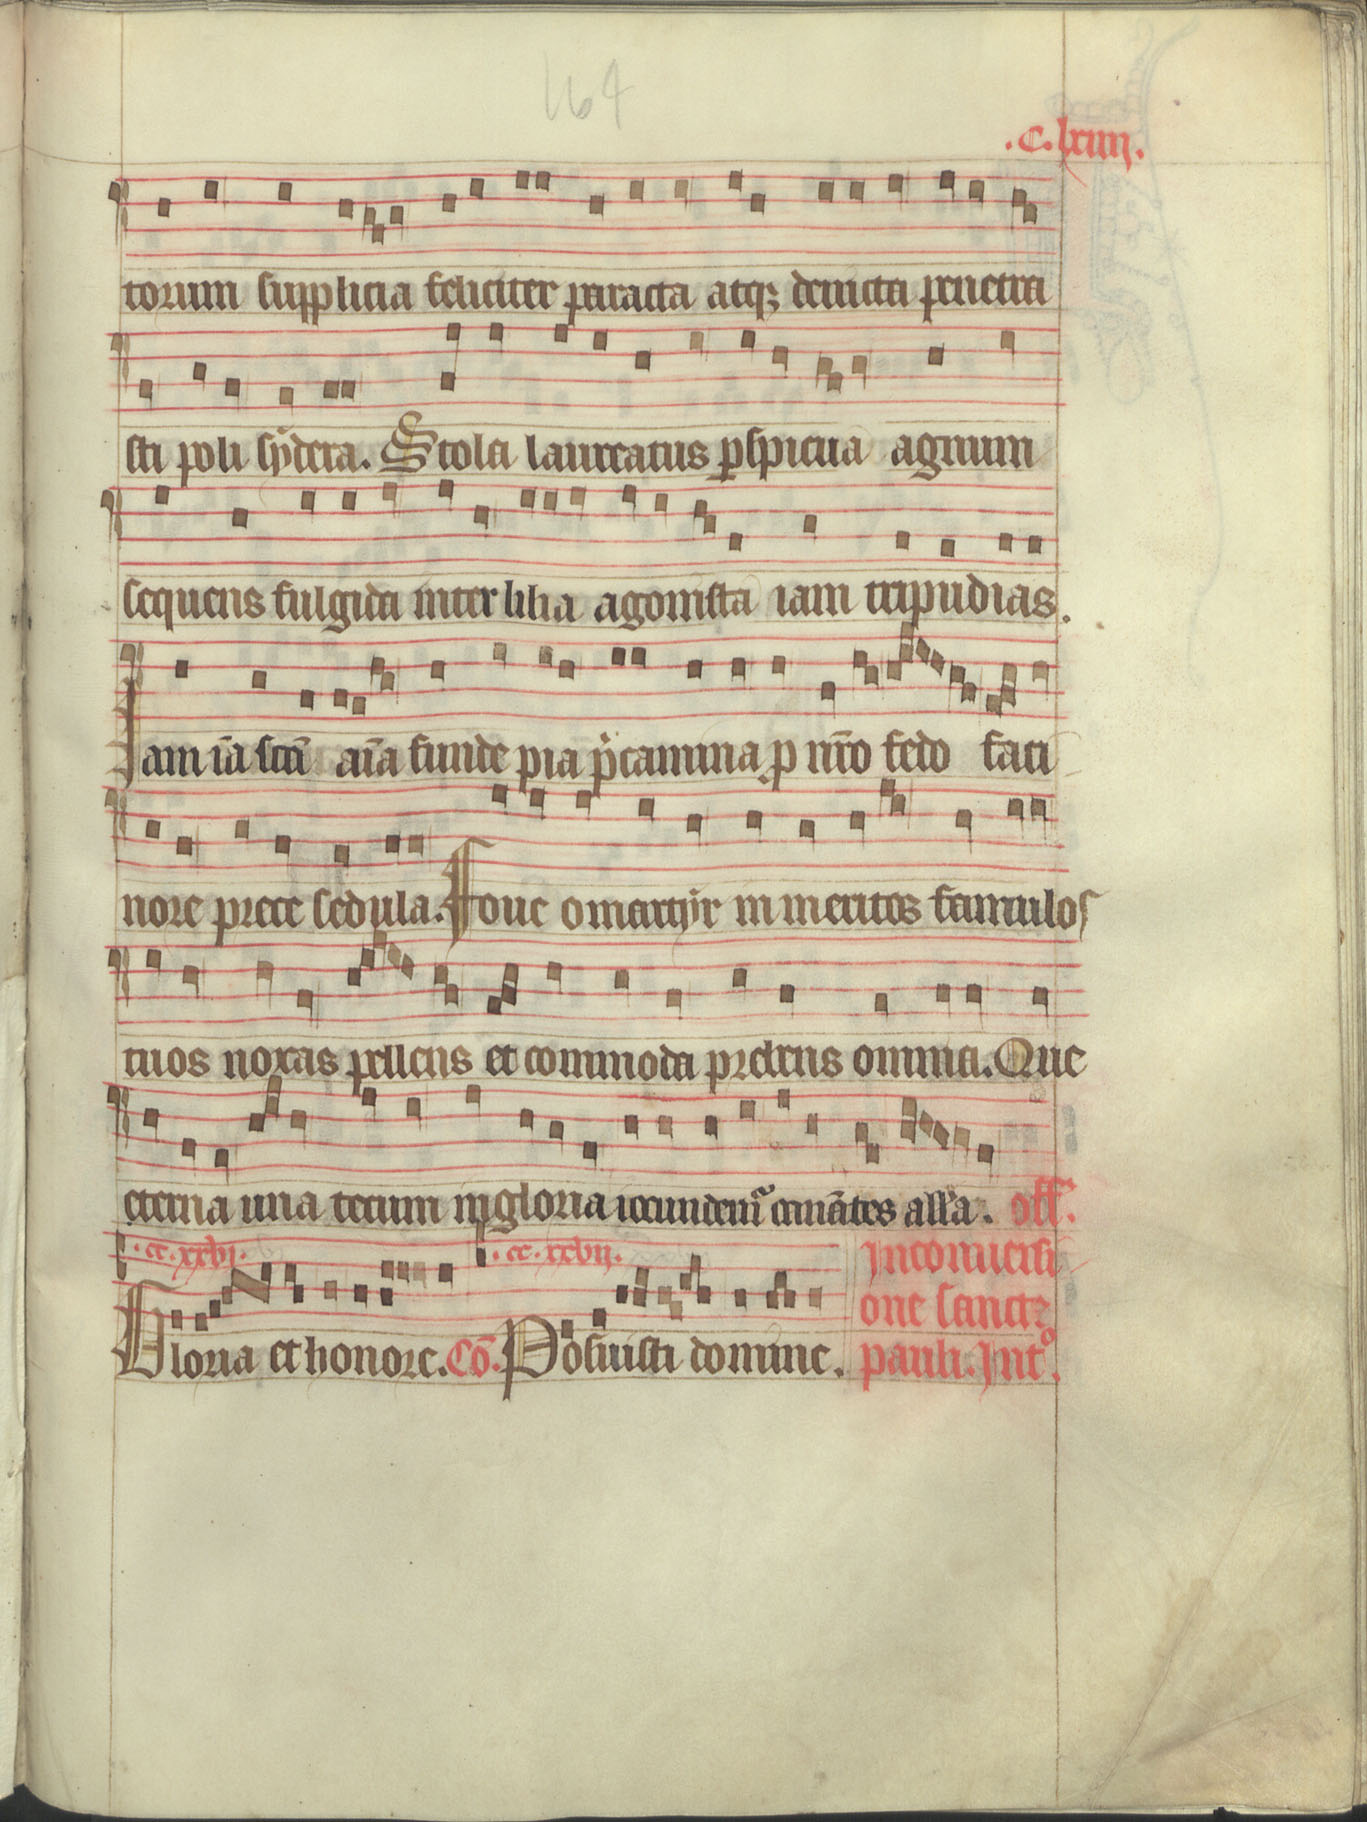 164
.c.lxiiij.
torum supplicia feliciter peracta atqꝫ deuicta penetra
sti poli sydera. Stola laureatus ꝑspicua agnum
sequens fulgida inter lilia agonista iam tripudias.
Iam iā sctā aīa funde pia p̄camina ꝓ nr̄o fedo faci
nore prece sedula. Foue o martyr in meritos famulos
tuos noxas pellens et commoda prebens omnia. Que
eterna una tecum in gloria iocundemᷓ cenātes all'a. off.
.cc.xxvj. .cc.xxvij. In conuersi
one sancte
Gloria et honore. Cō. Posuisti domine. pauli. Intº.